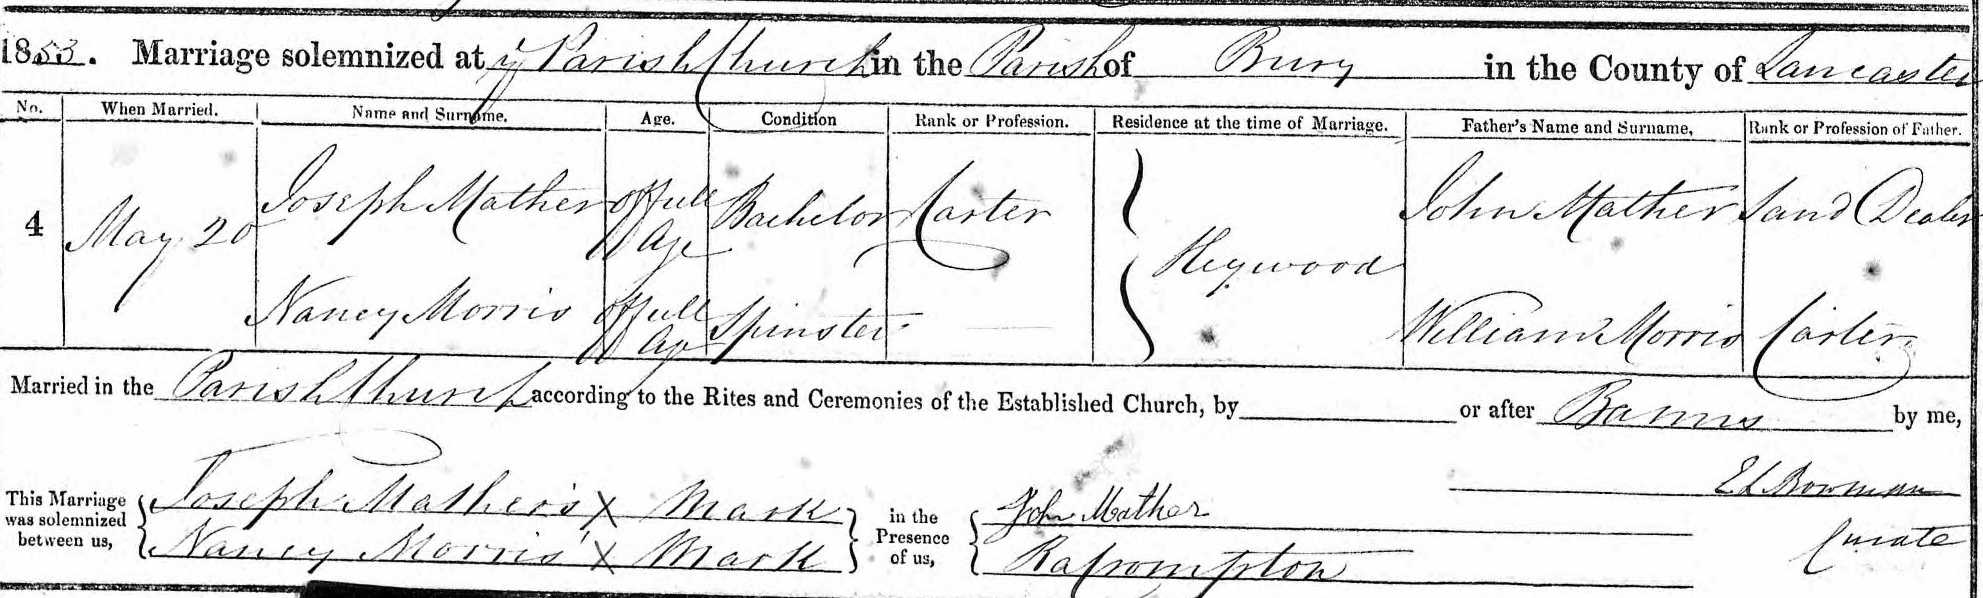 1853. Marriage solemnized at ye Parish Church in the Parish of Bury in the County of Lancaster
No. When Married. Name and Surname. Age. Condition Rank or Profession. Residence at the time of Marriage. Father's Name and Surname, Rank or Profession of Father.
4 May 20 Joseph Mather Of full Age Bachelor Carter Heywood John Mather Sand Dealer
Nancy Morris Of full Age Spinster William Morris Carter
Married in the Parish Church according to the Rites and Ceremonies of the Established Church, by or after Banns by me,
This Marriage was solemnized between us, Joseph Mather's X Mark in the Presence of us, John Mather E L Bowman
Nancy Morris' X Mark Curate